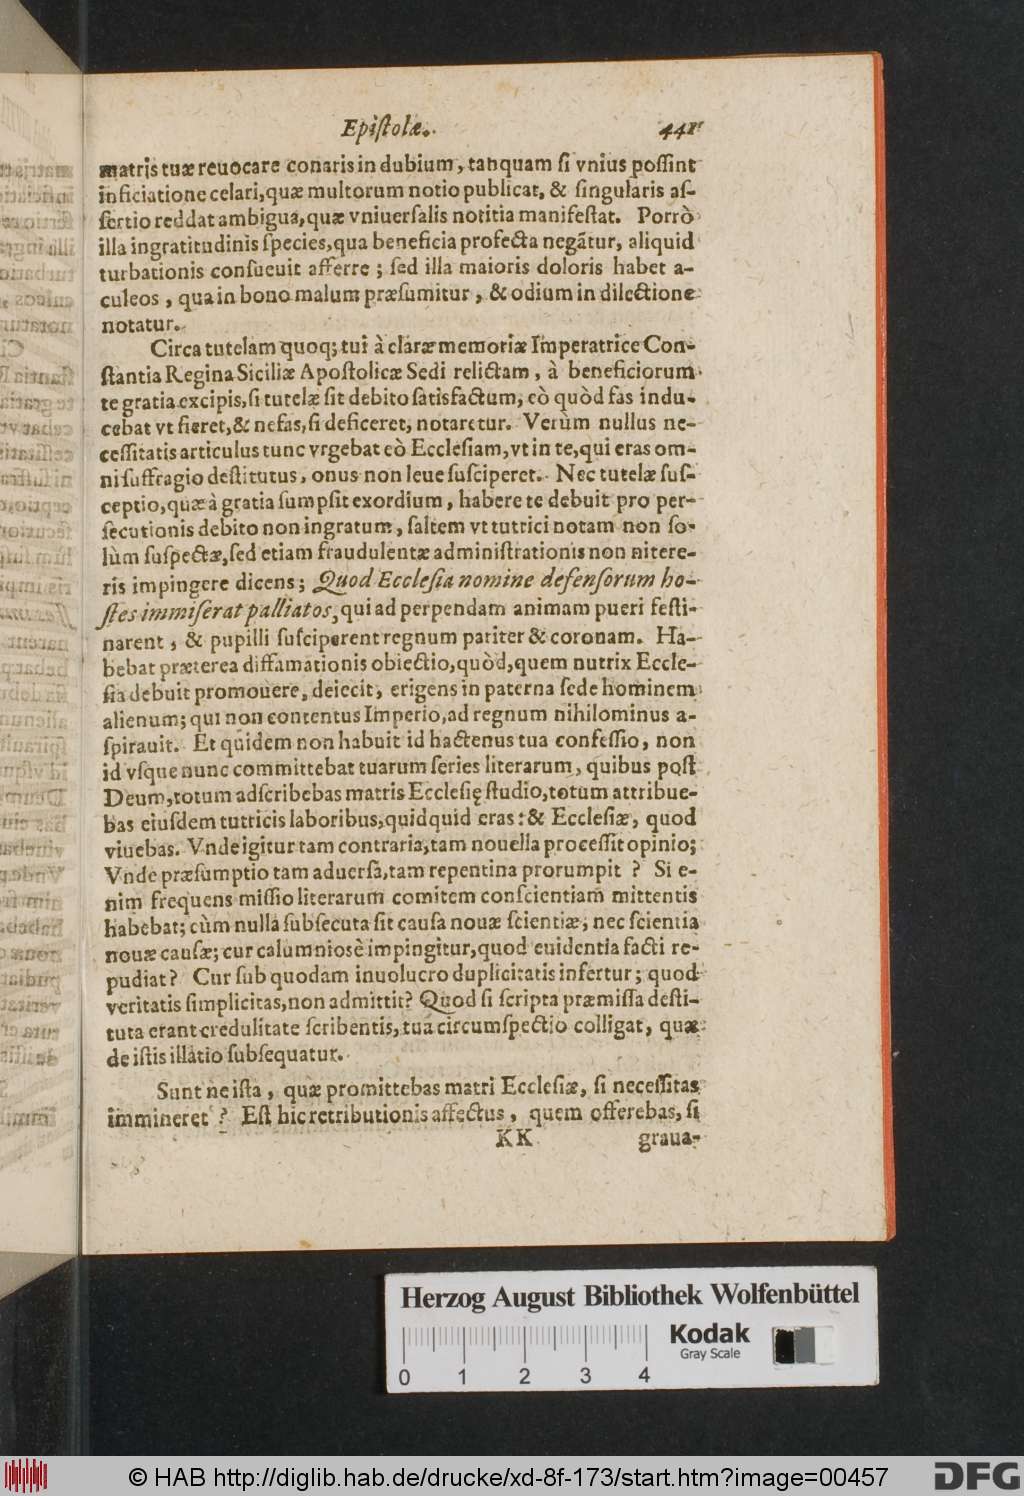 Epiſtolæ. 441
matris tuæ reuocare conaris in dubium, tanquam ſi vnius poſſint
inficiatione celari, quæ multorum notio publicat, & ſingularis aſ-
ſertio reddat ambigua, quæ vniuerſalis notitia manifeſtat. Porrò
illa ingratitudinis ſpecies, qua beneficia profecta negãtur, aliquid
turbationis conſueuit afferre; ſed illa maioris doloris habet a-
culeos, qua in bono malum præſumitur, & odium in dilectione
notatur.
Circa tutelam quoq; tui à claræ memoriæ Imperatrice Con-
ſtantia Regina Siciliæ Apoſtolicæ Sedi relictam, à beneficiorum
te gratia excipis, ſi tutelæ ſit debito ſatisfactum, eò quòd fas indu-
cebat vt fieret, & nefas, ſi deficeret, notaretur. Verùm nullus ne-
ceſſitatis articulus tunc vrgebat eò Eccleſiam, vt in te, qui eras om-
ni ſuffragio deſtitutus, onus non leue ſuſciperet. Nec tutelæ ſuſ-
ceptio, quæ à gratia ſumpſit exordium, habere te debuit pro per-
ſecutionis debito non ingratum, ſaltem vt tutrici notam non ſo-
lùm ſuſpectæ, ſed etiam fraudulentæ adminiſtrationis non nitere-
ris impingere dicens; Quod Eccleſia nomine defenſorum ho-
ſtes immiſerat palliatos, qui ad perpendam animam pueri feſti-
narent, & pupilli ſuſciperent regnum pariter & coronam. Ha-
bebat præterea diffamationis obiectio, quòd, quem nutrix Eccle-
ſia debuit promouere, deiecit, erigens in paterna ſede hominem
alienum; qui non contentus Imperio, ad regnum nihilominus a-
ſpirauit. Et quidem non habuit id hactenus tua confeſſio, non
id vſque nunc committebat tuarum ſeries literarum, quibus poſt
Deum, totum adſcribebas matris Eccleſię ſtudio, totum attribue-
bas eiuſdem tutricis laboribus, quidquid eras: & Eccleſiæ, quod
viuebas. Vnde igitur tam contraria, tam nouella proceſſit opinio;
Vnde præſumptio tam aduerſa, tam repentina prorumpit ? Si e-
nim frequens miſſio literarum comitem conſcientiam mittentis
habebat; cùm nulla ſubſecuta ſit cauſa nouæ ſcientiæ, nec ſcientia
nouæ cauſæ; cur calumniosè impingitur, quod euidentia facti re-
pudiat? Cur ſub quodam inuolucro duplicitatis infertur; quod
veritatis ſimplicitas, non admittit? Quod ſi ſcripta præmiſſa deſti-
tuta erant credulitate ſcribentis, tua circumſpectio colligat, quæ
de iſtis illatio ſubſequatur.
Sunt ne iſta, quæ promittebas matri Eccleſiæ, ſi neceſſitas
immineret ? Eſt hic retributionis affectus, quem offerebas, ſi
KK graua-
Herzog August Bibliothek Wolfenbüttel
Kodak
Gray Scale
0 1 2 3 4
© HAB http://diglib.hab.de/drucke/xd-8f-173/start.htm?image=00457
DFG